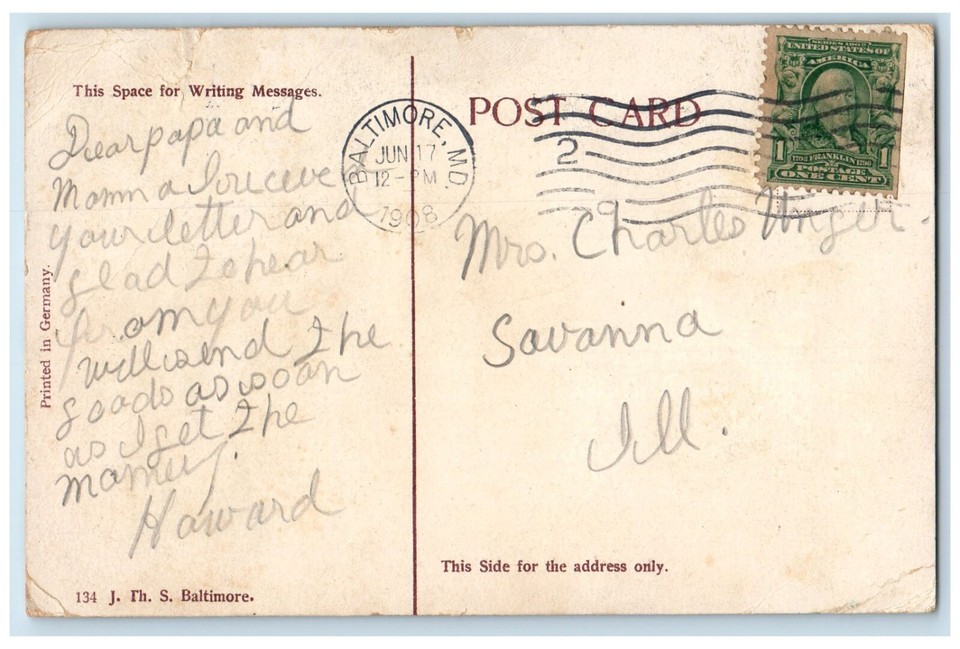 This Space for Writing Messages.
Dear papa and
Mamma I receve
your letter and
glad to hear
from you
will send the
goods as soon
as I get the
money.
Howard
Printed in Germany.
134 J. Th. S. Baltimore.
POST CARD
BALTIMORE, MD.
JUN 17
12-PM
1908
2
SERIES 1902
UNITED STATES OF
AMERICA
1 1
1706 FRANKLIN 1790
POSTAGE
ONE CENT
Mrs. Charles Unger
Savanna
Ill.
This Side for the address only.